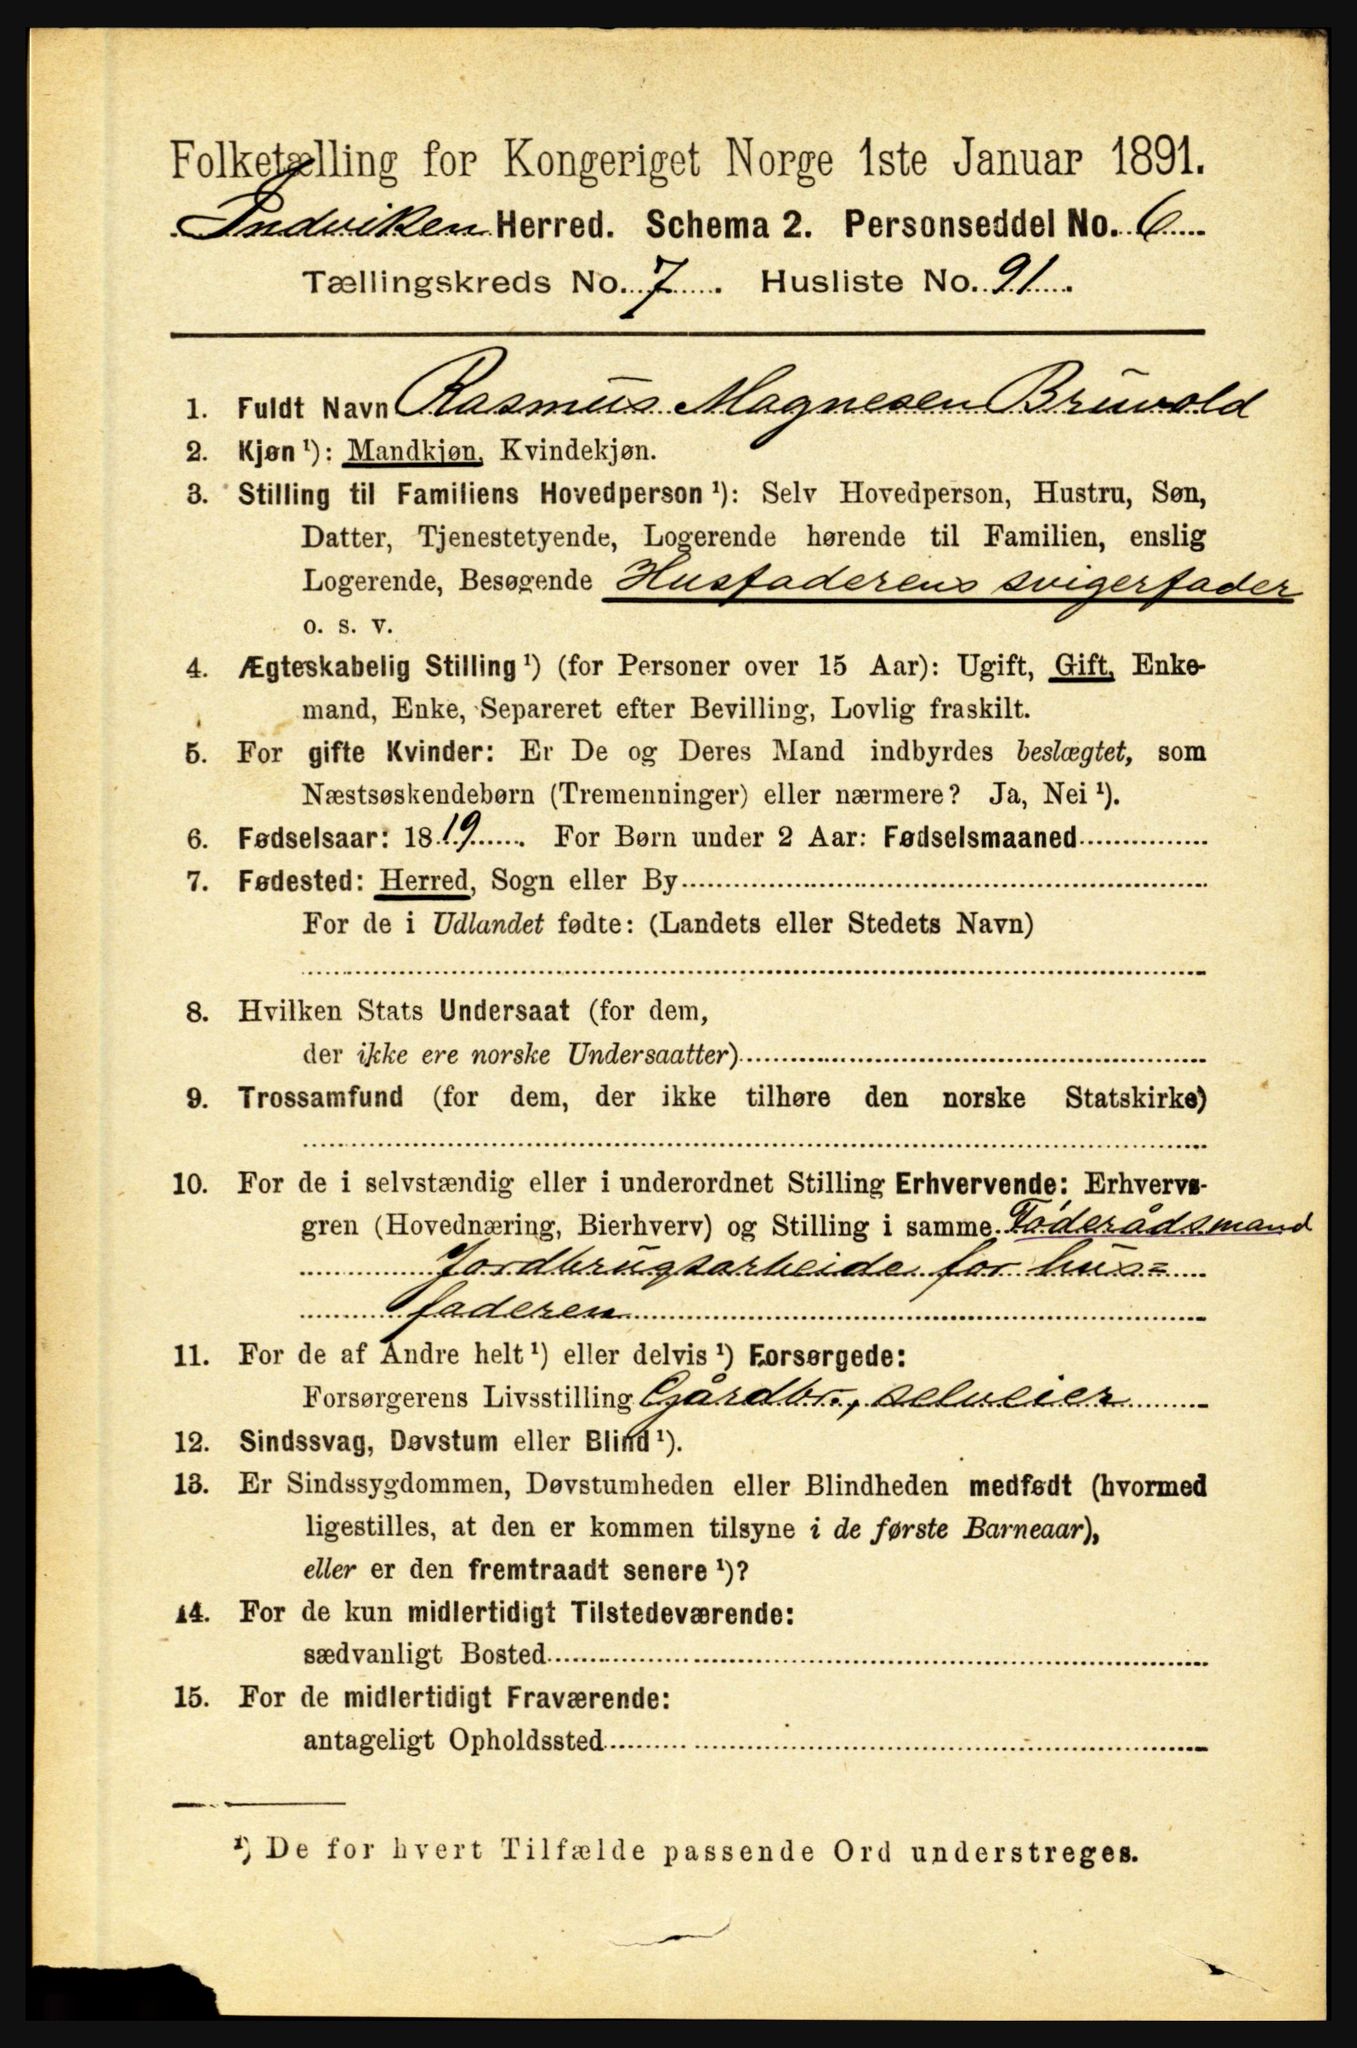 Folketælling for Kongeriget Norge 1ste Januar 1891.
Indviken Herred. Schema 2. Personseddel No. 6
Tællingskreds No. 7. Husliste No. 91.
1. Fuldt Navn Rasmus Magnesen Bruvold
2. Kjøn ¹): Mandkjøn, Kvindekjøn.
3. Stilling til Familiens Hovedperson ¹): Selv Hovedperson, Hustru, Søn,
Datter, Tjenestetyende, Logerende hørende til Familien, enslig
Logerende, Besøgende Husfaderens svigerfader
o. s. v.
4. Ægteskabelig Stilling ¹) (for Personer over 15 Aar): Ugift, Gift, Enke-
mand, Enke, Separeret efter Bevilling, Lovlig fraskilt.
5. For gifte Kvinder: Er De og Deres Mand indbyrdes beslægtet, som
Næstsøskendebørn (Tremenninger) eller nærmere? Ja, Nei ¹).
6. Fødselsaar: 1819. For Børn under 2 Aar: Fødselsmaaned
7. Fødested: Herred, Sogn eller By
For de i Udlandet fødte: (Landets eller Stedets Navn)
8. Hvilken Stats Undersaat (for dem,
der ikke ere norske Undersaatter)
9. Trossamfund (for dem, der ikke tilhøre den norske Statskirke)
10. For de i selvstændig eller i underordnet Stilling Erhvervende: Erhvervs-
gren (Hovednæring, Bierhverv) og Stilling i samme Føderådsmand
Jordbrugsarbeide for hus=
faderen
11. For de af Andre helt ¹) eller delvis ¹) Forsørgede:
Forsørgerens Livsstilling Gårdbr., selveier
12. Sindssvag, Døvstum eller Blind ¹).
13. Er Sindssygdommen, Døvstumheden eller Blindheden medfødt (hvormed
ligestilles, at den er kommen tilsyne i de første Barneaar),
eller er den fremtraadt senere ¹)?
14. For de kun midlertidigt Tilstedeværende:
sædvanligt Bosted
15. For de midlertidigt Fraværende:
antageligt Opholdssted
¹) De for hvert Tilfælde passende Ord understreges.